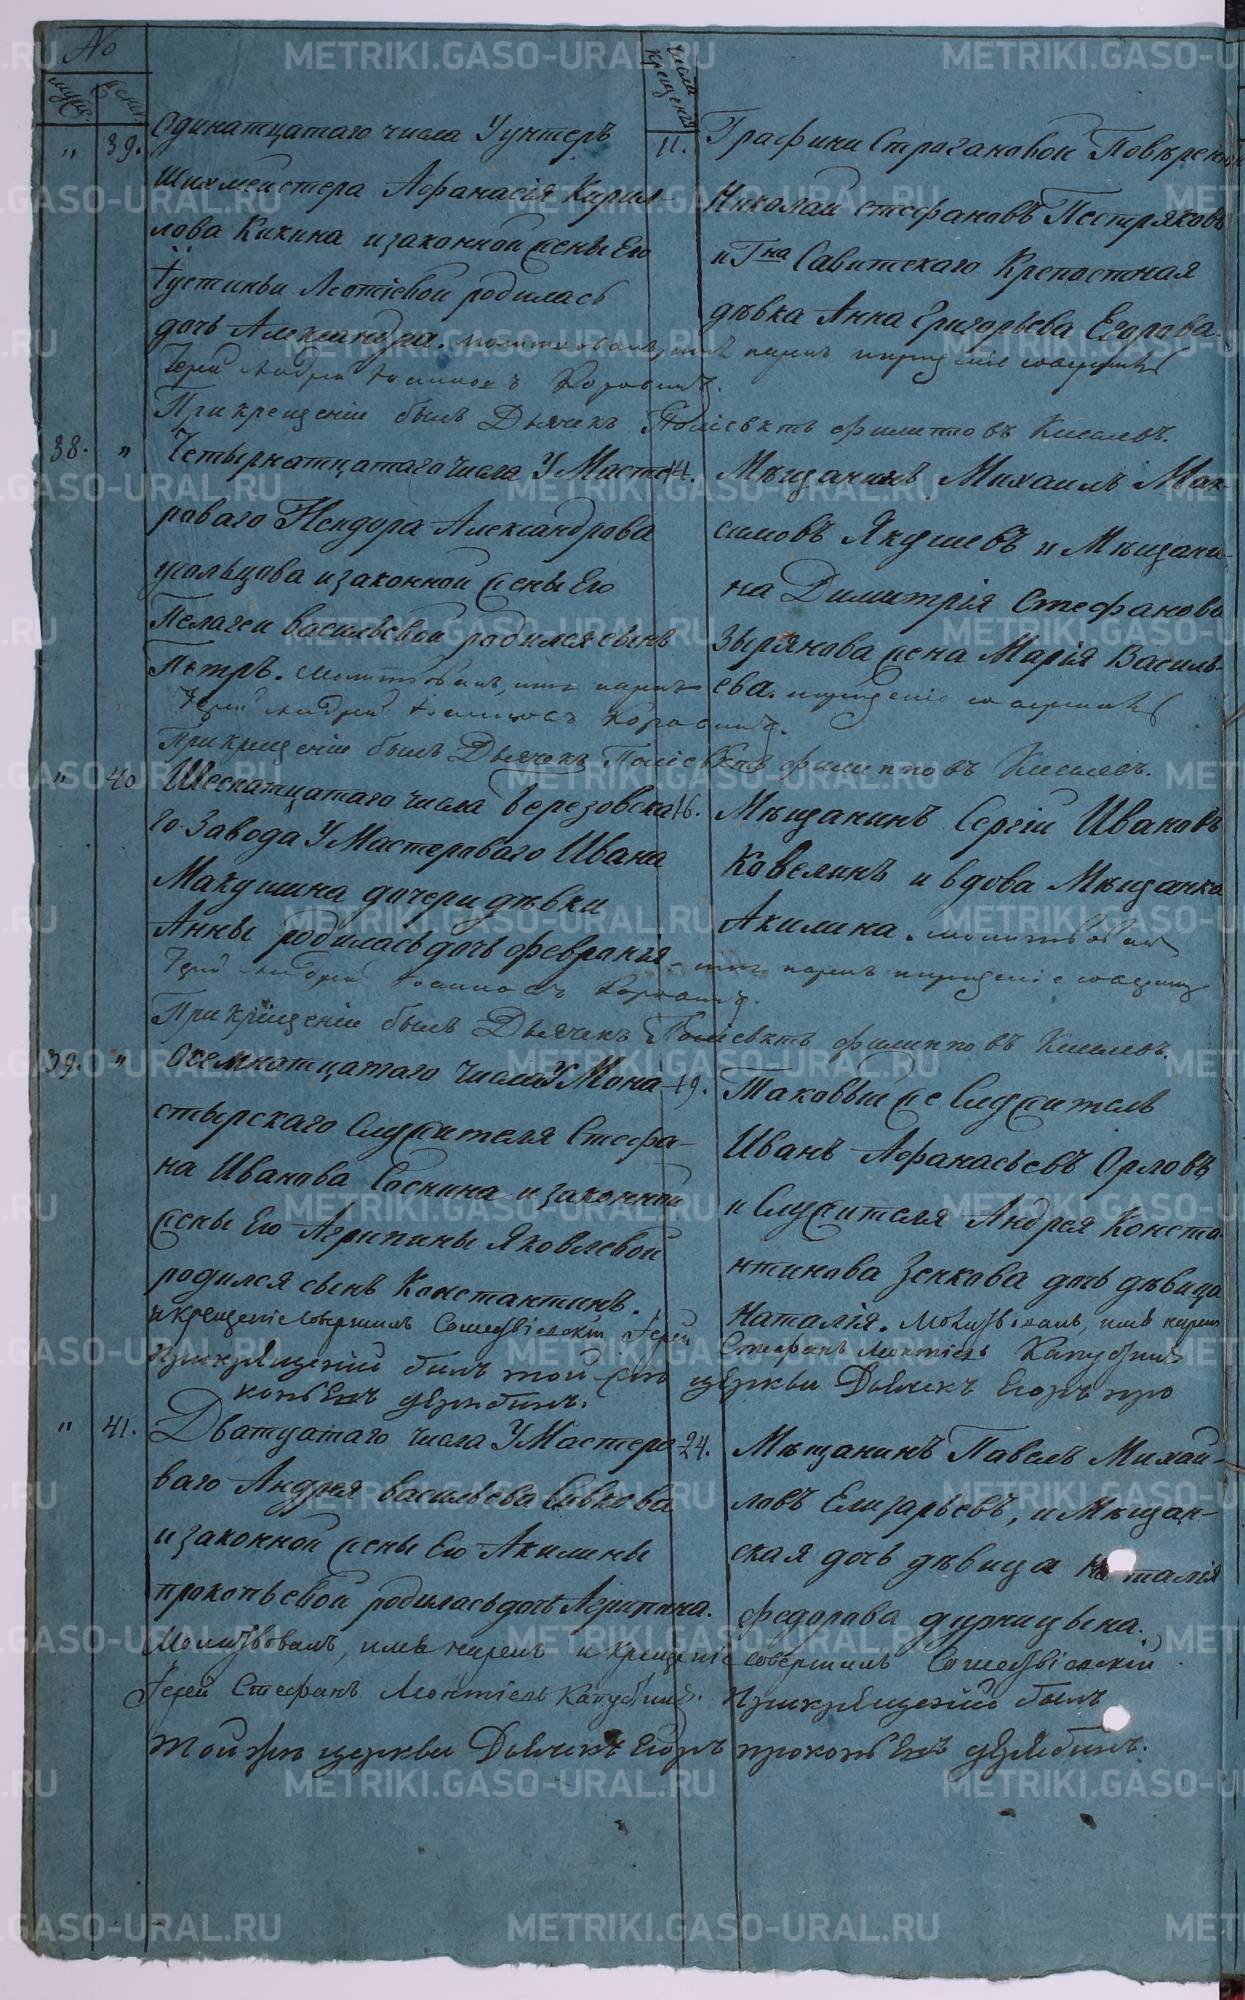 №
муж. женс.
числа крещенія
" 39.
Одинатцатаго числа У унтеръ
Шихмейстера Афанасія Кирил-
лова Кикина и законной жены Его
Іустиньи Леотіевой родилась
дочь Александра. молитвовалъ, имя нарекъ и крещеніе совершилъ
Іерей Андрей Іоанновъ Коровинъ.
При крещеніи былъ Дьячекъ Поліевктъ Филипповъ Киселевъ.
11. Графини Строгановой Повѣренный
Николай Стефановъ Пестряковъ
и Гна Савитскаго Крепостная
дѣвка Анна Григорьева Егорова.
38. "
Четырнатцатаго числа У Масте-
роваго Исидора Александрова
усольцова и законной жены Его
Пелагеи васильевой родился сынъ
Петръ. Молитвовалъ, имя нарекъ
Іерей Андрей Іоанновъ Коровинъ.
При крещеніи былъ Дьячекъ Поліевктъ Филипповъ Киселевъ.
14. Мѣщанинъ Михаилъ Мак-
симовъ Якушевъ и Мѣщани-
на Димитрія Стефанова
Зырянова жена Марія Василь-
ева. и крещеніе совершилъ
" 40
Шеснатцатаго числа Березовска-
го Завода У Мастероваго Ивана
Макушина дочери дѣвки
Анны родилась дочь февронія
Іерей Андрей Іоанновъ Коровинъ.
При крещеніи былъ Дьячекъ Поліевктъ Филипповъ Киселевъ.
16. Мѣщанинъ Сергій Ивановъ
Ковелинъ и вдова Мѣщанка
Акилина. молитвовалъ
имя нарекъ и крещеніе совершилъ
39. "
Осемнатцатаго числа У Мона-
стырскаго Служителя Стефа-
на Иванова Соснина и законной
жены Его Агрипины Яковлевой
родился сынъ Константинъ.
и крещеніе совершилъ Сошествіевскій Іерей
При крещеніи былъ той же церкви Дьячекъ Егоръ про
копьевъ дерябинъ.
19. Таковый же Служитель
Иванъ Афанасьевъ Орловъ
и Служителя Андрея Конста-
нтинова Зенкова дочь дѣвица
Наталія. Молитвовалъ, имя нарекъ
Стефанъ Леонтіевъ Капустинъ
" 41.
Дватцатаго числа У Мастеро-
ваго Андрея васильева Сивкова
и законной жены Его Акилины
прокопьевой родилась дочь Агрипина.
Молитвовалъ, имя нарекъ и крещеніе совершилъ Сошествіевскій
Іерей Стефанъ Леонтіевъ Капустинъ. При крещеніи былъ
той же церкви Дьячекъ Егоръ прокопьевъ дерябинъ.
24. Мѣщанинъ Павелъ Михай-
ловъ Елизарьевъ, и Мѣщан-
ская дочь дѣвица Наталія
федорова дурницына.
METRIKI.GASO-URAL.RU